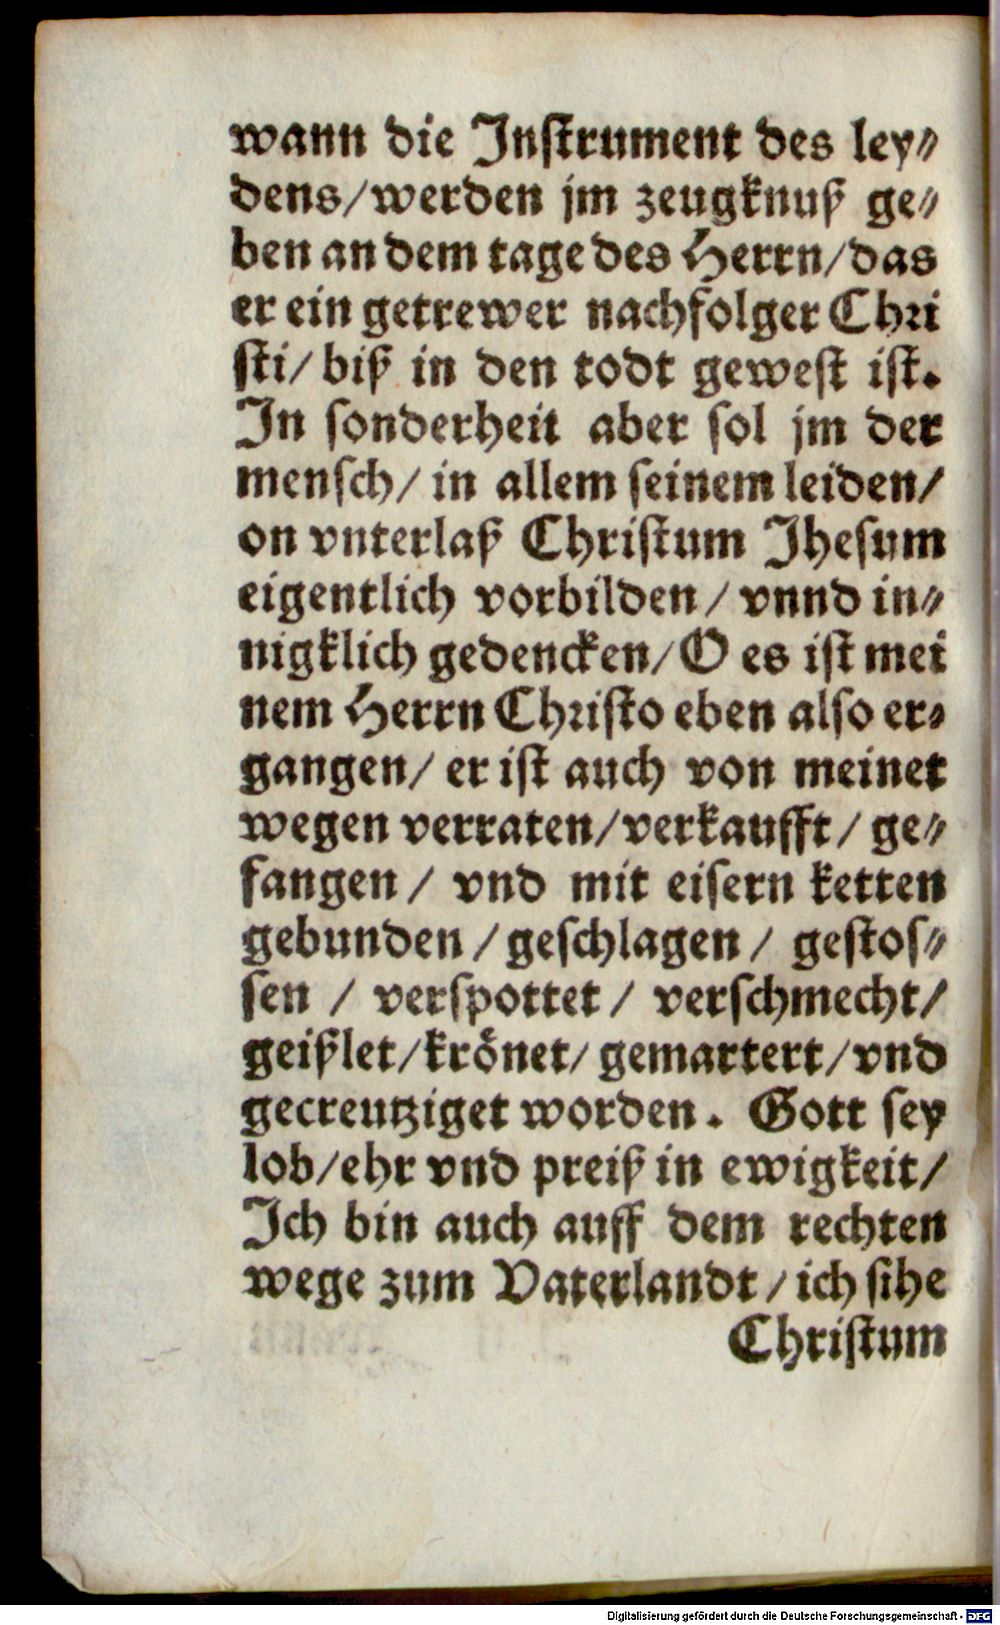 wann die Inſtrument des ley⸗
dens/werden jm zeugknuß ge⸗
ben an dem tage des Herrn/das
er ein getrewer nachfolger Chri
ſti/ biß in den todt geweſt iſt.
In ſonderheit aber ſol jm der
menſch/ in allem ſeinem leiden/
on vnterlaß Chriſtum Jheſum
eigentlich vorbilden/ vnnd in⸗
nigklich gedencken/ O es iſt mei
nem Herrn Chriſto eben alſo er⸗
gangen/ er iſt auch von meinet
wegen verraten/verkaufft/ ge⸗
fangen/ vnd mit eiſern ketten
gebunden/geſchlagen/ geſtoſ⸗
ſen / verſpottet/ verſchmecht/
geißlet/krönet/ gemartert/vnd
gecreutziget worden. Gott ſey
lob/ehr vnd preiß in ewigkeit/
Ich bin auch auff dem rechten
wege zum Vaterlandt/ich ſihe
Chriſtum
Digitalisierung gefördert durch die Deutsche Forschungsgemeinschaft - DFG